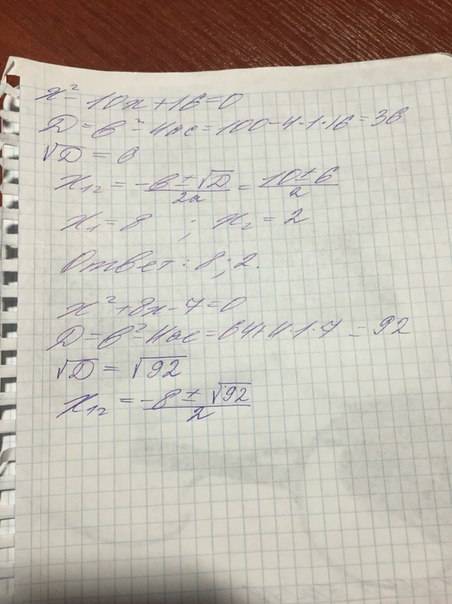 x² - 10x + 16 = 0
D = b² - 4ac = 100 - 4·1·16 = 36
√D = 6
x₁₂ = (-b ± √D)/2a = (10 ± 6)/2
x₁ = 8 ; x₂ = 2
Ответ: 8; 2.
x² + 8x - 7 = 0
D = b² - 4ac = 64 + 4·1·7 = 92
√D = √92
x₁₂ = (-8 ± √92)/2